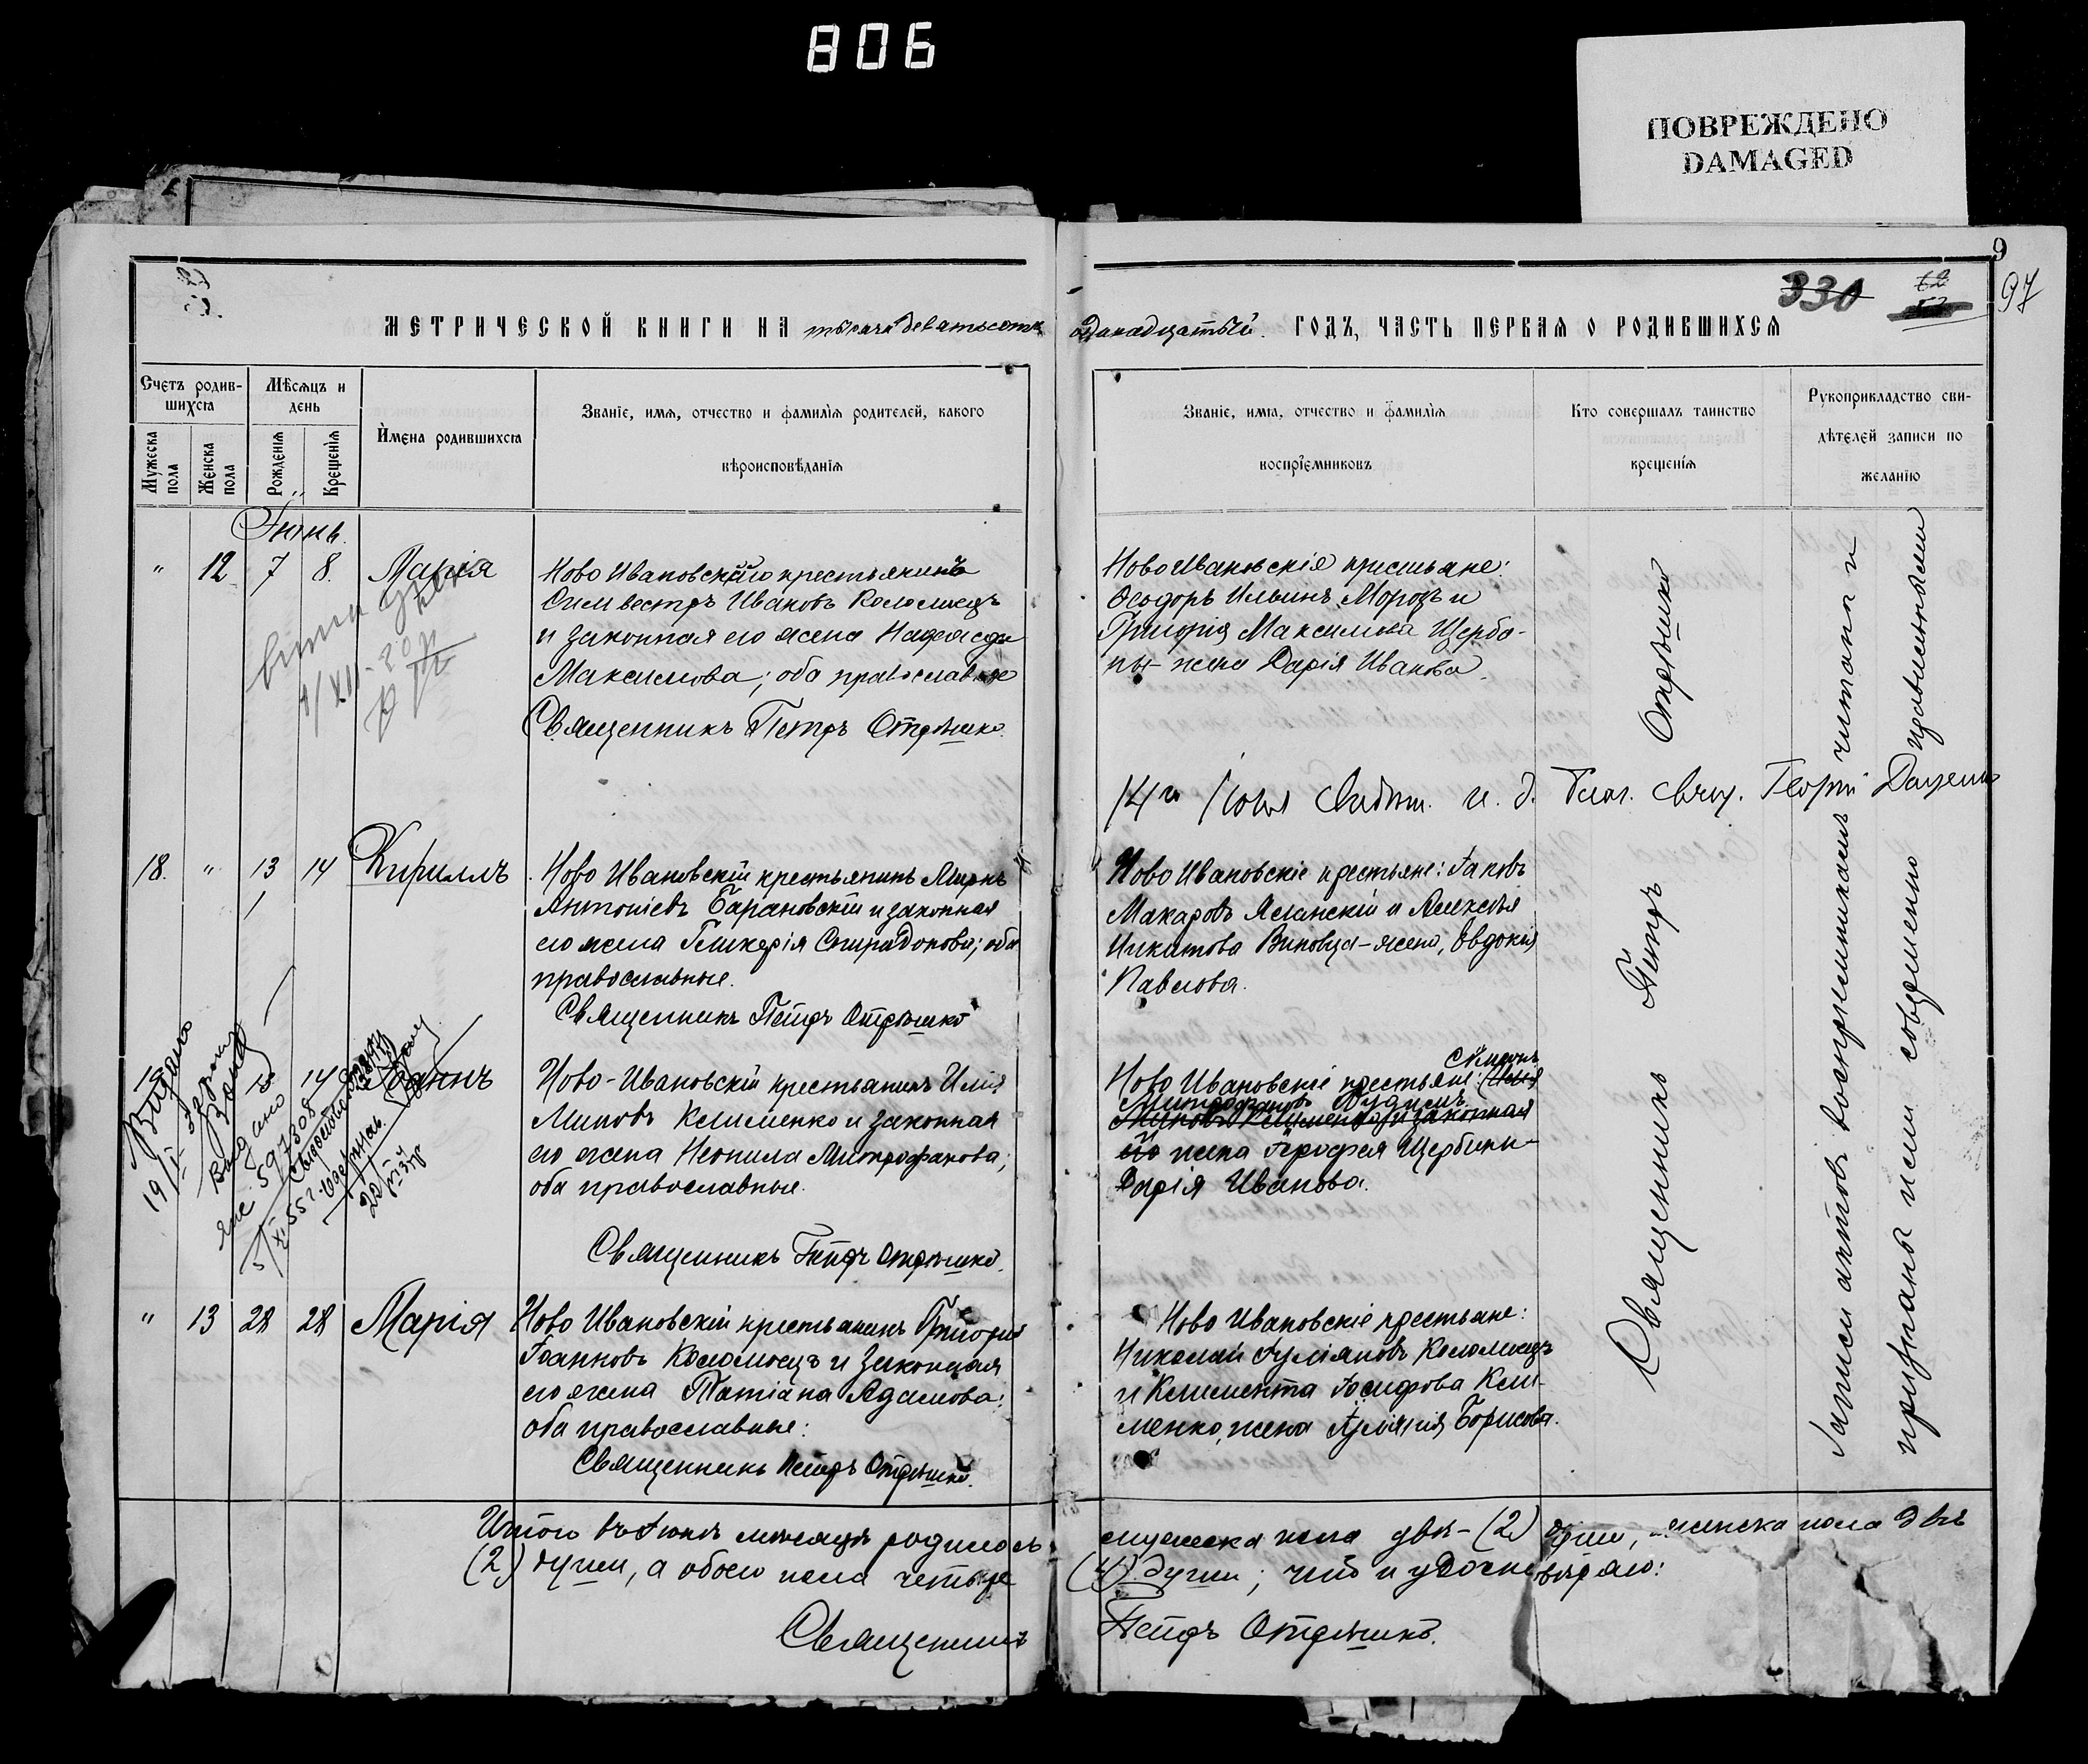 806
ПОВРЕЖДЕНО
DAMAGED
9
97
330
МЕТРИЧЕСКОЙ КНИГИ НА тысяча девятьсотъ одинадцатый. ГОДЪ, ЧАСТЬ ПЕРВАЯ О РОДИВШИХСЯ
Счетъ родив-
шихся
Мужеска пола
Женска пола
Мѣсяцъ и
день
Рожденія
Крещенія
Имена родившихся
Званіе, имя, отчество и фамилія родителей, какого
вѣроисповѣданія
Званіе, имя, отчество и фамилія
воспріемниковъ
Кто совершалъ таинство
крещенія
Рукоприкладство сви-
дѣтелей записи по
желанію
Іюнь.
" 12 7 8. Марія
Ново Ивановскій крестьянинъ
Сильвестръ Ивановъ Коломіецъ
и законная его жена Надежда
Максимова; оба православные
Священникъ Петръ Отрѣшко.
Ново Ивановскіе крестьяне:
Ѳеодоръ Ильинъ Морозъ и
Григорія Максимова Щерби-
ны жена Дарія Иванова.
Георгій
18. " 13 14 Кириллъ
Ново Ивановскій крестьянинъ
Антоніевъ Барановскій и законная
его жена Гликерія Спиридонова; оба
православные.
Священникъ Петръ Отрѣшко
Ново Ивановскіе крестьяне: Іаковъ
Макаровъ и Алексѣя
Никитова жена, Евдокія
Павлова.
14 Іоаннъ
Выдано
597308
Ново-Ивановскій крестьянинъ Илія
Миновъ Клименко и законная
его жена Неонила Митрофанова;
оба православные.
Священникъ Петръ Отрѣшко.
Ново Ивановскіе крестьяне: Симеонъ
Митрофановъ
Миновъ Клименко и законная
его жена Іерофея Щербины
Дарія Иванова.
" 13 28 28 Марія
Ново Ивановскій крестьянинъ Григорій
Іоанновъ Коломіецъ и законная
его жена Татіана Адамова:
оба православные:
Священникъ Петръ Отрѣшко.
Ново Ивановскіе крестьяне:
Николай Іуліановъ Коломіецъ
и Климента Іосифова Кли-
менко, жена Іуліанія Борисова.
Священникъ Петръ Отрѣшко
Записи актовъ воспріемникамъ читаны и
признаны ими совершенно правильными
Итого въ Іюнѣ мѣсяцѣ родилось мужеска пола двѣ - (2) души, женска пола двѣ
(2) души, а обоего пола четыре (4) души; что и удостовѣряю:
Священникъ Петръ Отрѣшко.